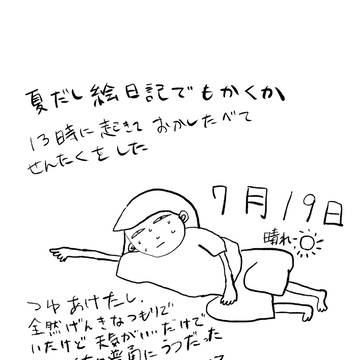 夏だし絵日記でもかくか
13時に起きて おかしたべて
せんたくをした
7月19日
晴れ
つゆあけたし、
全然げんきなつもりで
いたけど 天気がいいだけで
普通にうつだった